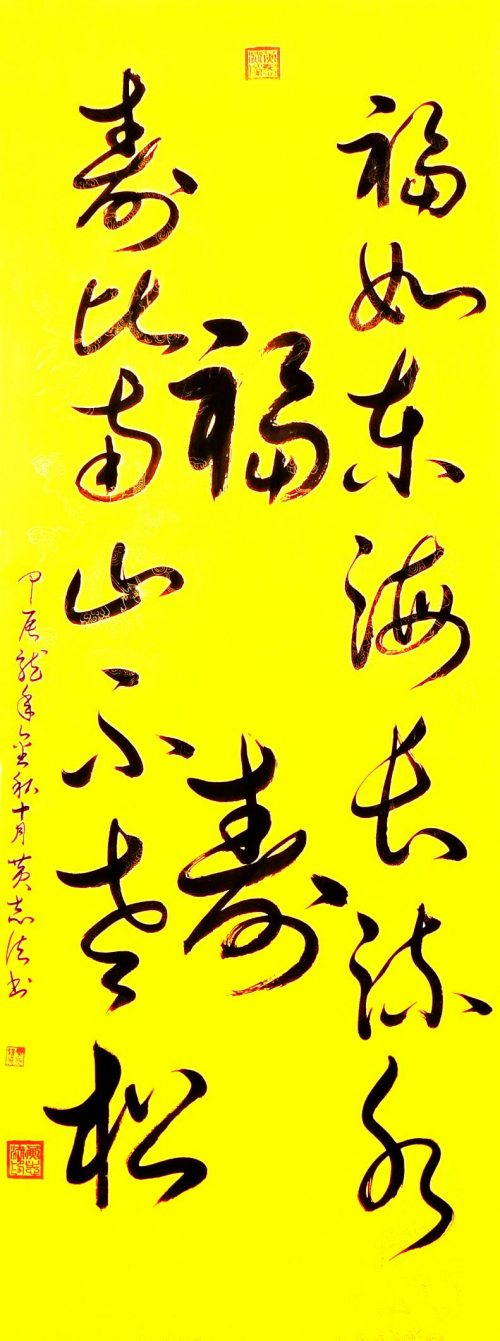 福如东海长流水
福寿
寿比南山不老松
甲辰龙年金秋十月黄志法书